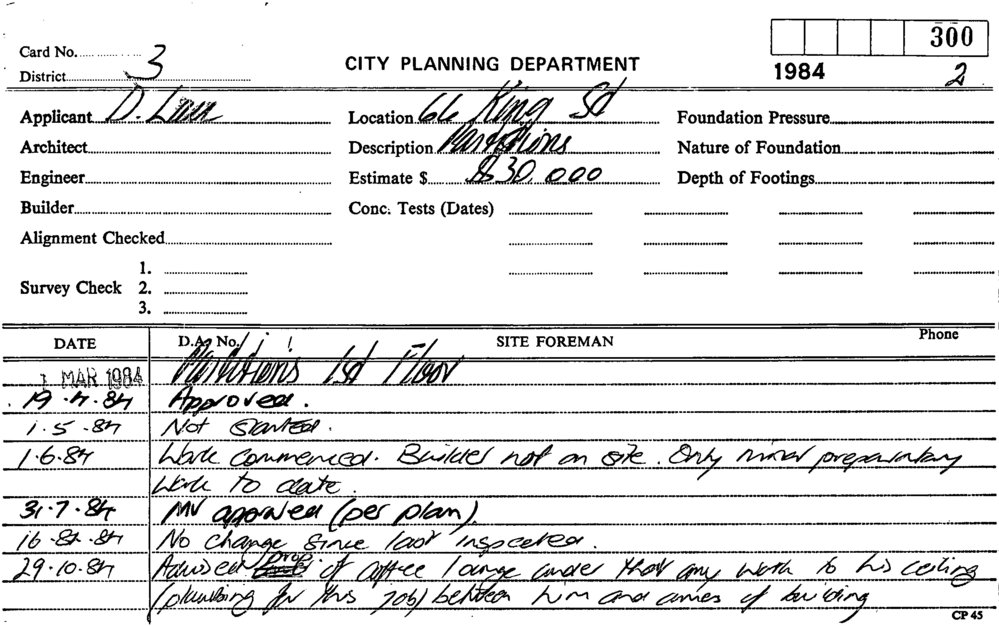 300
Card No. 3
CITY PLANNING DEPARTMENT
1984 2
District
Applicant D. Lau Location 66 King St Foundation Pressure
Architect Description Partitions Nature of Foundation
Engineer Estimate $ $30,000 Depth of Footings
Builder Conc. Tests (Dates)
Alignment Checked
1.
Survey Check 2.
3.
DATE D.A. No. / ! SITE FOREMAN Phone
1 MAR 1984 Partitions 1st Floor
19.4.84 Approved.
1.5.84 Not Started.
1.6.84 Work commenced. Builder not on site. Only minor preparatory
work to date.
31.7.84 MV approved (per plan).
16.8.84 No change since last inspected.
29.10.84 Advised prop of coffee lounge under that any work to his ceiling
(plumbing for this job) between him and owners of building
CP 45